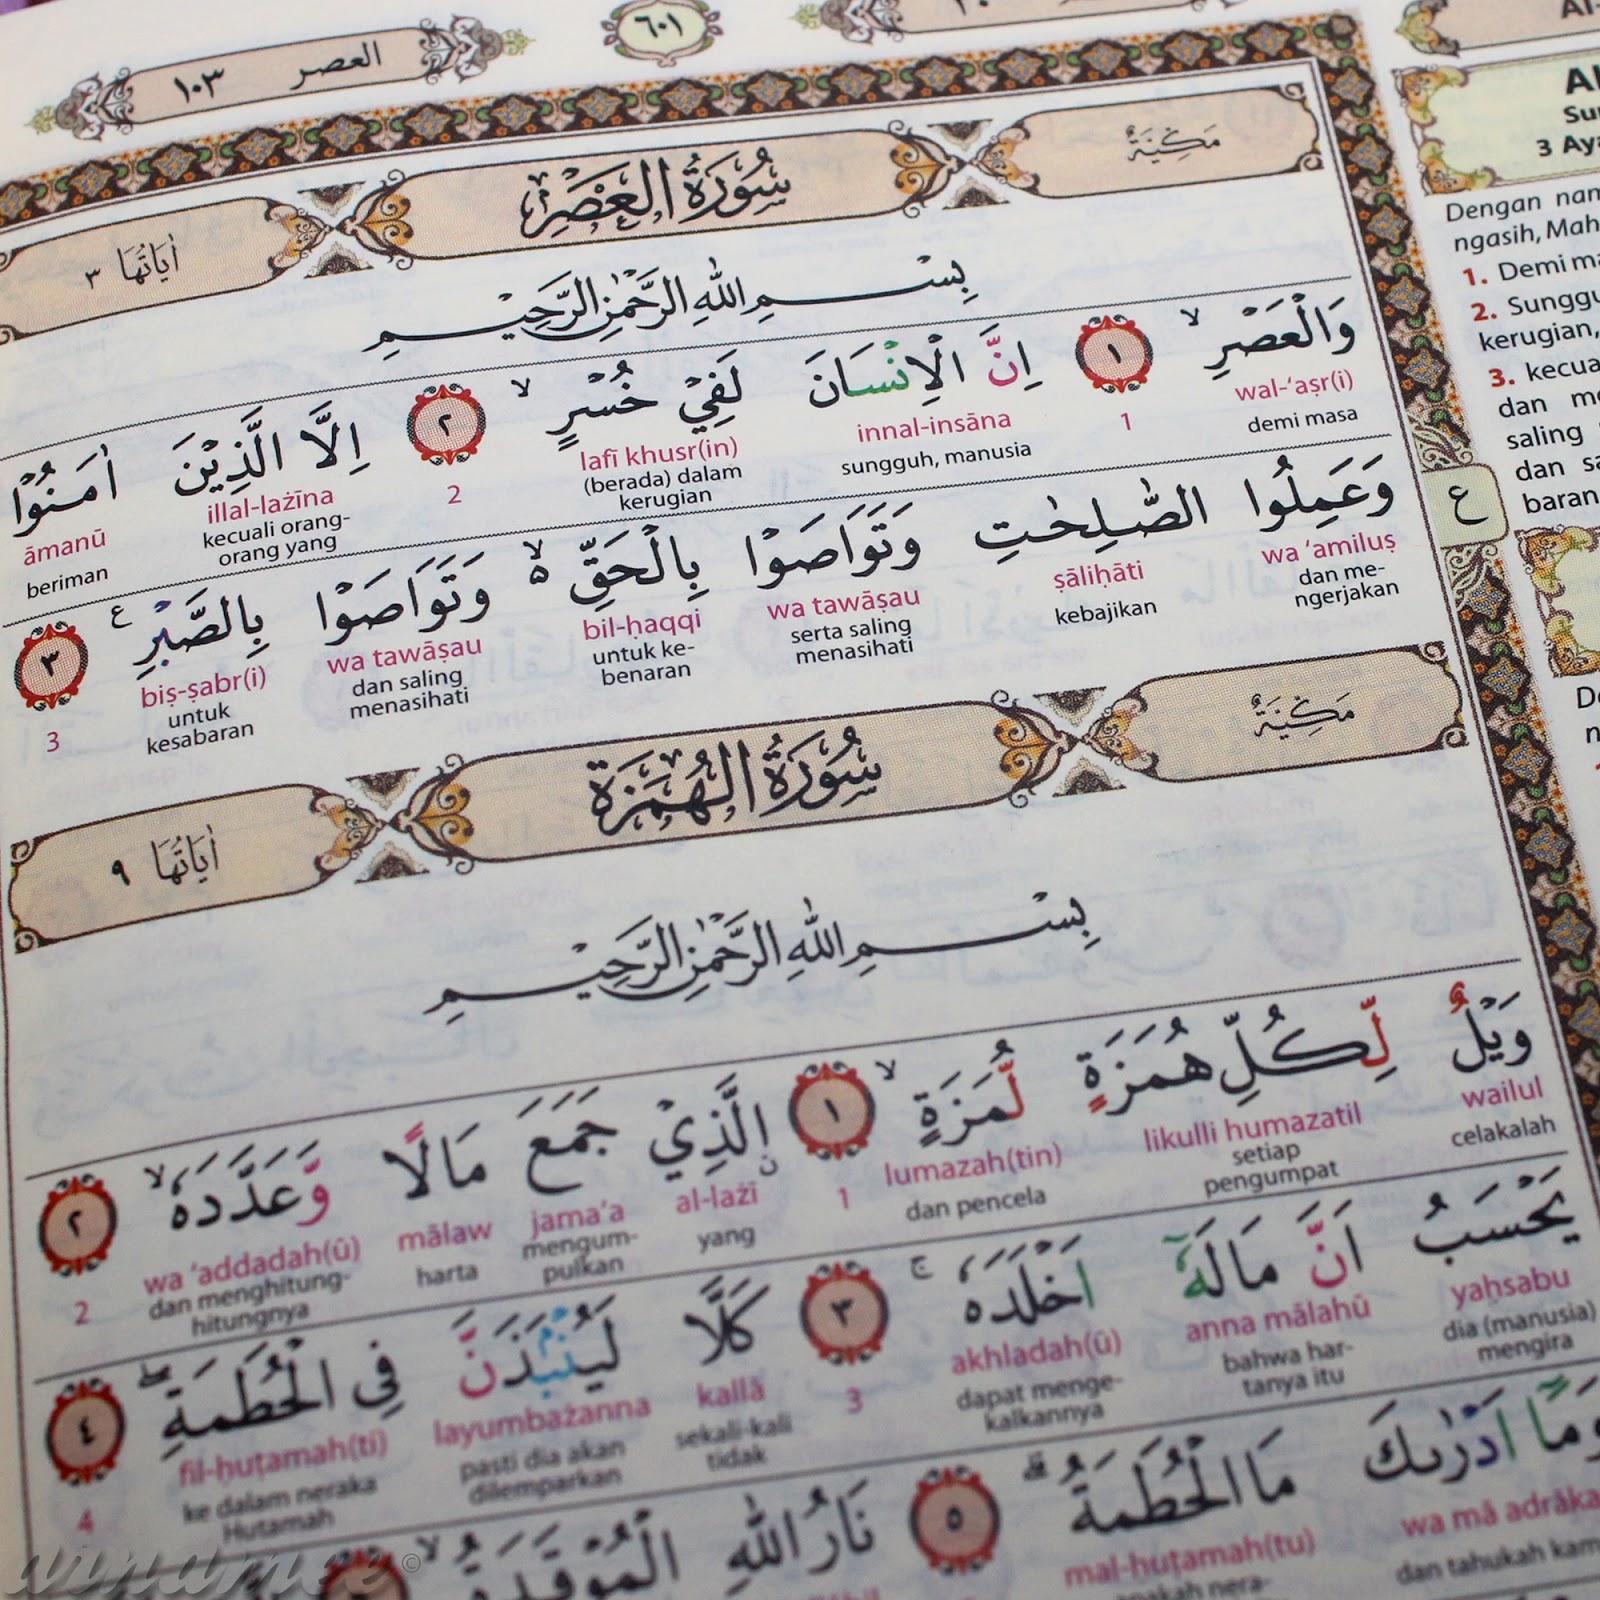 العصر ١٠٣
٦٠١
سُوْرَةُ الْعَصْرِ
مَكِّيَّةٌ
اٰيَاتُهَا ٣
بِسْمِ اللّٰهِ الرَّحْمٰنِ الرَّحِيْمِ
وَالْعَصْرِۙ ١ اِنَّ الْاِنْسَانَ لَفِيْ خُسْرٍۙ ٢ اِلَّا الَّذِيْنَ اٰمَنُوْا
wal-‘aṣr(i) 1 innal-insāna lafī khusr(in) 2 illal-lażīna āmanū
demi masa sungguh, manusia (berada) dalam kerugian kecuali orang-orang yang beriman
وَعَمِلُوا الصّٰلِحٰتِ وَتَوَاصَوْا بِالْحَقِّ ەۙ وَتَوَاصَوْا بِالصَّبْرِ ࣖ ٣
wa ‘amiluṣ ṣāliḥāti wa tawāṣau bil-ḥaqqi wa tawāṣau biṣ-ṣabr(i) 3
dan me-ngerjakan kebajikan serta saling menasihati untuk ke-benaran dan saling menasihati untuk kesabaran
ع
سُوْرَةُ الْهُمَزَةِ
مَكِّيَّةٌ
اٰيَاتُهَا ٩
بِسْمِ اللّٰهِ الرَّحْمٰنِ الرَّحِيْمِ
وَيْلٌ لِّكُلِّ هُمَزَةٍ لُّمَزَةٍۙ ١ ۨالَّذِيْ جَمَعَ مَالًا وَّعَدَّدَهٗۙ ٢
wailul likulli humazatil lumazah(tin) 1 al-lażī jama‘a mālaw wa ‘addadah(ū) 2
celakalah setiap pengumpat dan pencela yang mengum-pulkan harta dan menghitung-hitungnya
يَحْسَبُ اَنَّ مَالَهٗٓ اَخْلَدَهٗۚ ٣ كَلَّا لَيُنْۢبَذَنَّ فِى الْحُطَمَةِۖ ٤
yaḥsabu anna mālahū akhladah(ū) 3 kallā layumbażanna fil-ḥuṭamah(ti) 4
dia (manusia) mengira bahwa har-tanya itu dapat menge-kalkannya sekali-kali tidak pasti dia akan dilemparkan ke dalam neraka Hutamah
وَمَآ اَدْرٰىكَ مَا الْحُطَمَةُۗ ٥ نَارُ اللّٰهِ الْمُوْقَدَةُۙ
wa mā adrāka mal-ḥuṭamah(tu)
dan tahukah kam apakah nera-
3 Aya
Dengan nam
ngasih, Mah
1. Demi ma
2. Sunggu
kerugian,
3. kecua
dan me
saling
dan sa
baran